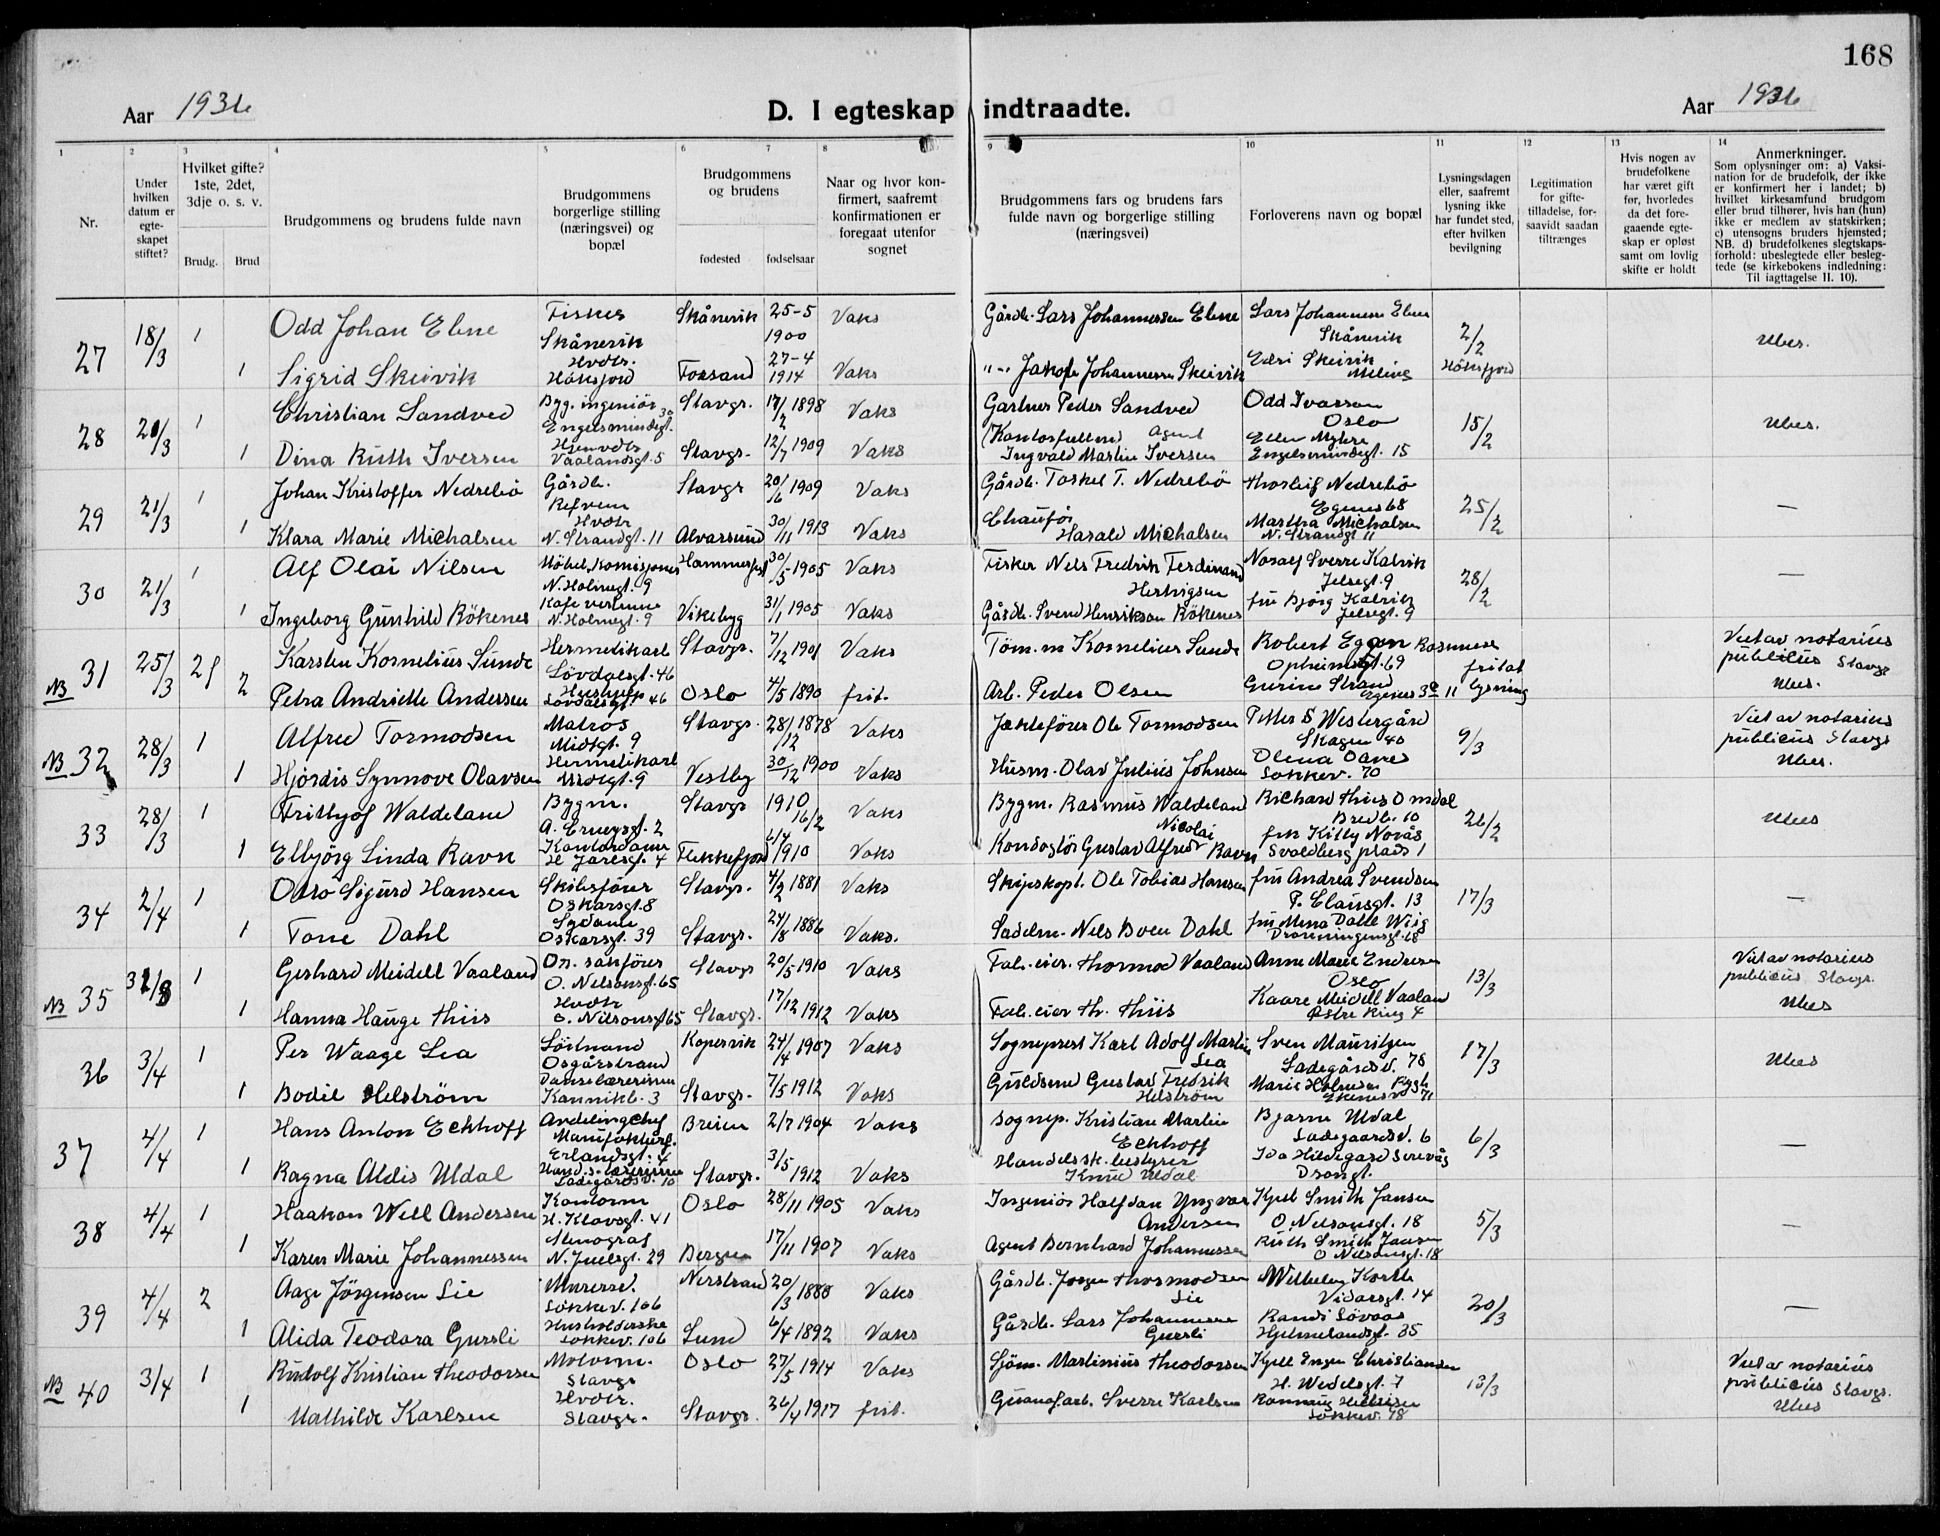 168
Aar 1936
D. I egteskap indtraadte.
Aar 1936
1
Nr.
2
Under hvilken datum er egteskapet stiftet?
3
Hvilket gifte? 1ste, 2det, 3dje o. s. v.
Brudg.
Brud
4
Brudgommens og brudens fulde navn
5
Brudgommens borgerlige stilling (næringsvei) og bopæl
6
7
Brudgommens og brudens
fødested
fødselsaar
8
Naar og hvor konfirmert, saafremt konfirmationen er foregaat utenfor sognet
9
Brudgommens fars og brudens fars fulde navn og borgerlige stilling (næringsvei)
10
Forloverens navn og bopæl
11
Lysningsdagen eller, saafremt lysning ikke har fundet sted, efter hvilken bevilgning
12
Legitimation for giftetilladelse, forsaavidt saadan tiltrænges
13
Hvis nogen av brudefolkene har været gift før, hvorledes da det foregaaende egteskap er opløst samt om lovlig skifte er holdt
14
Anmerkninger.
Som oplysninger om: a) Vaksination for de brudefolk, der ikke er konfirmert her i landet; b) hvilket kirkesamfund brudgom eller brud tilhører, hvis han (hun) ikke er medlem av statskirken; c) utensogns bruders hjemsted; NB. d) brudefolkenes slegtskapsforhold: ubeslegtede eller beslegtede (se kirkebokens indledning: Til iagttagelse II. 10).
27 18/3 1 Odd Johan Ebne Fisker Skånevik Skånevik 25-5 1900 Vaks Gårdb. Lars Johannessen Ebne Lars Johannessen Ebne Skånevik 2/2 Ubes.
1 Sigrid Skeivik Hvdtr. Høksfjord Forsand 27-4 1914 Vaks "-" Jakob Johannessen Skeivik Skeivik Høksfjord
28 21/3 1 Christian Sandved Byg. ingeniør 30 Stavgr. 17/2 1898 Vaks Gartner Peder Sandved Odd Ivarson Oslo 15/2 Ubes.
1 Dina Ruth Iversen Hjemvdtr Vaalandsgt. 5 Stavgr. 12/7 1909 Vaks Agent Ingvald Martin Iversen Ellen Myhre Engelsmindegt. 15
29 21/3 1 Johan Kristoffer Nedrebö Gårdb. Refveim Stavgr 20/6 1909 Vaks Gårdb. Torkel T. Nedrebö Thorleif Nedrebö Egenes 68 25/2 —
1 Klara Marie Michalsen Hvdtr N. Strandgt. 11 Alvarsund 30/11 1913 Vaks Chauför Harald Michalsen Martha Michalsen N. Strandgt 11
30 21/3 1 Alf Olai Nilsen N. Holmegt. 9 Hammerfest 30/5 1905 Vaks Fisker Nels Fredrik Ferdinand Hertvigsen Noralf Sverre Kalvik Jelsegt. 9 28/2 —
1 Ingeborg Gunhild Rökenes N. Holmegt. 9 Vikebyg 31/1 1905 Vaks Gårdb. Svend Henrikson Rökenes fru Bjørg Kalvik Jelsegt. 9
NB 31 25/3 Karsten Kornelius Sunde Hermetikarb Lövdalsgt. 46 Stavgr. 7/12 1901 Vaks Töm. m Kornelius Sunde Robert Egean Rasmussen Opheimsgt. 69 fritat lysning Viet av notarius publicus Stavgr Ubes.
2 Petra Andrielle Andersen Lövdalsgt 46 Oslo 4/5 1890 frit. Arb. Peder Olsen Gurine Strand Egenes 11
NB 32 28/3 1 Alfred Tormodsen Matros Midtgt. 9 Stavgr. 28/12 1878 Vaks Jækteförer Ole Tormodsen Petter S Westergård Skagen 40 9/3 Viet av notarius publicus Stavgr Ubes.
1 Hjördis Synnove Olavsen Hermetikarb Midtgt. 9 Vestby 30/12 1900 Vaks Husm. Olav Julius Johnsen Olena Sokkev. 70
33 28/3 1 Frithjof Waldeland Bygm. Stavgr 1910 16/2 Vaks Bygm. Rasmus Waldeland Richard Thies Omdal Bredb. 10 26/2 Ubes
1 Elbjörg Linda Ravn Kontordame H. Jarlsgt. 4 Flekkefjord 6/4 1910 Vaks Konduktör Gustav Alfred Nicolai Ravn frk Kitty Novås Svoldberg plads 1
34 2/4 1 Sigurd Hansen Skibsförer Oskarsgt. 8 Stavgr. 4/2 1881 Vaks Skipskapt. Ole Tobias Hansen fru Andrea Svendsen P. Clausgt. 13 17/3 —
1 Tone Dahl Sydame Oskarsgt. 39 Stavgr. 24/8 1886 Vaks. Sadelm. Nils Boen Dahl fru Mena Dahl Wiig Dronningensgt. 68
NB 35 1 Gerhard Meidell Vaaland O. Nilsonsgt. 65 Stavgr 20/5 1910 Vaks Fab. eier. Thormod Vaaland Anne Marie Endresen Oslo 13/3 Viet av notarius publicus Stavgr. Ubes
1 Hanna Hauge Thiis Hvdtr O. Nilsonsgt 65 Stavgr. 17/12 1912 Vaks Fab. eier Th. Thiis Kaare Meidell Vaaland Østre Ring 4
36 3/4 1 Per Waage Lea Löitnand Osgårstrand Kopervik 24/4 1907 Vaks Sogneprest Karl Adolf Martin Lea Sven Mauritzen Ladegårdsv. 78 17/3 Ubes
1 Bodil Helström Danselærerinne Kannikb. 3 Stavgr. 7/5 1912 Vaks Guldsmed Gustav Fredrik Helström Marie Holmsen Rygh Ekenesv 71
37 4/4 1 Hans Anton Eckhoff Avdelingchef Manufakturf. Erlandsgt. 4 Breien 2/7 1904 Vaks Sognep. Kristian Martin Eckhoff Bjarne Udal Ladegaardsv. 6 6/3 —
1 Ragna Aldis Udal Hand.s.lærerinne Ladegårdsv. 10 Stavgr. 3/5 1912 Vaks Handelssk. bestyrer Knud Udal Ida Hildegard Serevåg Drongt.
38 4/4 1 Haakon Well Andersen Kontorm H. Klavsgt. 41 Oslo 28/11 1905 Vaks Ingeniör Halfdan Yngvar Andersen Kjell Smith Jansen O. Nilsonsgt. 18 5/3 —
1 Karen Marie Johannessen Stenograf N. Juelsgt. 29 Bergen 17/11 1907 Vaks Agent Bernhard Johannessen Ruth Smith Jansen O Nilsonsgt. 18
39 4/4 2 Aage Jörgensen Lie Murersv. Sokkev. 106 Nerstrand 20/3 1888 Vaks Gårdb. Jorgen Thormodsen Lie Wilhelm Korth Vidarsgt. 14 20/3 —
1 Alida Teodora Gursli Husholderske Sokkev. 106 Lund 6/4 1892 Vaks Gårdb. Lars Johannessen Gursli Randi Lövaas Hjelmelandsgt. 35
NB 40 3/4 1 Rudolf Kristian Theodorsen Motorm. Stavgr Oslo 27/5 1914 Vaks Sjöm. Martinius Theodorsen Kjell Inger Christiansen H. Wedelsgt. 7 13/3 Viet av notarius publicus Stavgr. Ubes
1 Mathilde Karlsen Hvdtr. Stavgr. Stavgr. 26/4 1917 frit. Guanof. arb. Sverre Karlsen Sokkev. 78